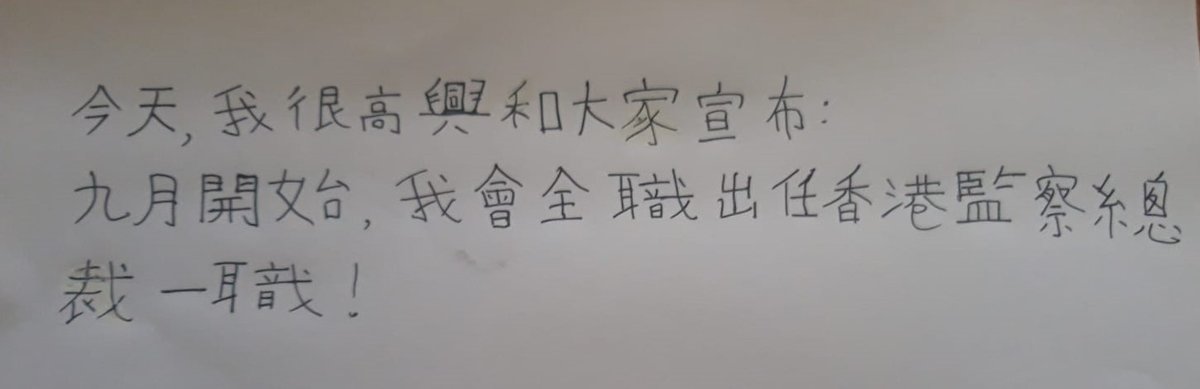 今天,我很高興和大家宣布:
九月開始,我會全職出任香港監察總
裁一職!